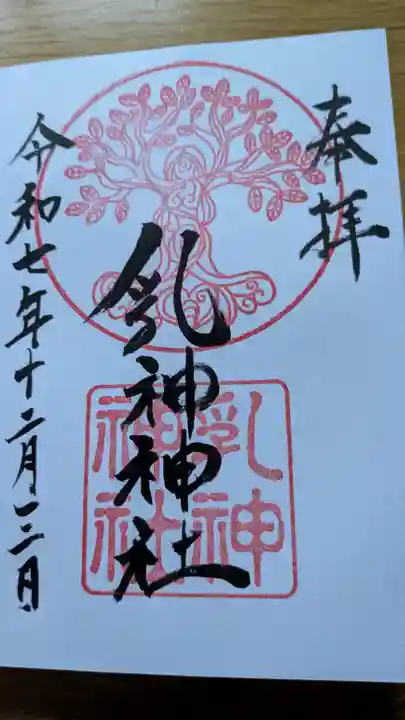 奉拝
乳神神社
令和七年十二月十三日
乳神
神社